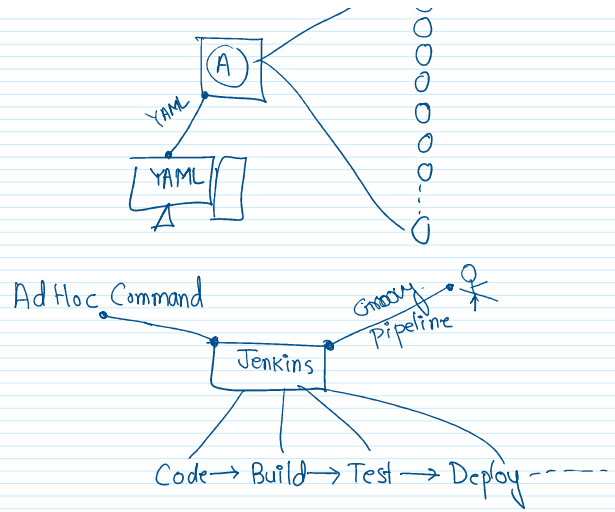 A
YAML
YAML
Ad Hoc Command
Groovy
Pipeline
Jenkins
Code → Build → Test → Deploy ------